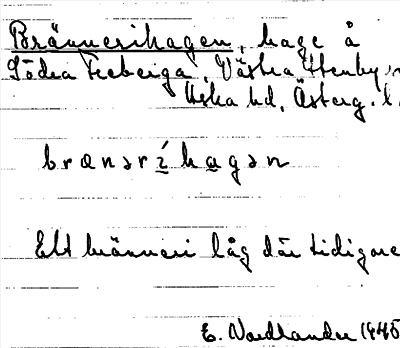 Brännerihagen, hage å
Södra Freberga, Västra Stenby,
Aska hd, Österg. l.
brænəríhagən
Ett bränneri låg där tidigare
E. Nordlander 1945